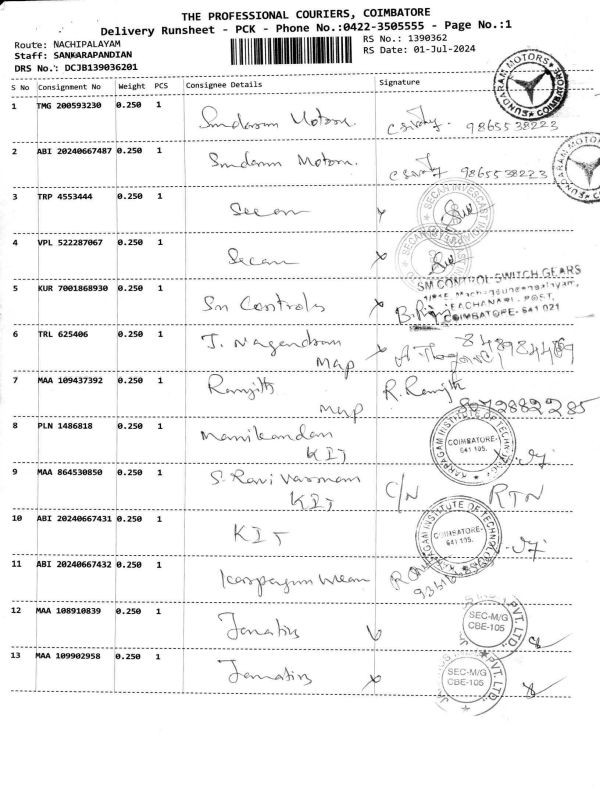 THE PROFESSIONAL COURIERS, COIMBATORE
Delivery Runsheet - PCK - Phone No.:0422-3505555 - Page No.:1
Route: NACHIPALAYAM
RS No.: 1390362
Staff: SANKARAPANDIAN
RS Date: 01-Jul-2024
DRS No.: DCJB139036201
S No Consignment No Weight PCS Consignee Details Signature
SUNDARAM MOTORS COIMBATORE
1 TMG 200593230 0.250 1 Sundaram Motors. 9865538223
2 ABI 20240667487 0.250 1 Sundaram Motors. 9865538223
3 TRP 4553444 0.250 1 Secan
4 VPL 522287067 0.250 1 Secan
5 KUR 7001868930 0.250 1 Sm Controls
SM CONTROL SWITCH GEARS
EACHANARI POST,
COIMBATORE- 641 021
6 TRL 625406 0.250 1 J. Nagendran
Map
7 MAA 109437392 0.250 1 Ranjith R. Ranjith
Map 8072882285
8 PLN 1486818 0.250 1 Manikandan
KIT
KARPAGAM INSTITUTE OF TECHNOLOGY
COIMBATORE-
641 105.
9 MAA 864530850 0.250 1 S. Ravi Varman C/N RTN
KIT
10 ABI 20240667431 0.250 1 KIT
KARPAGAM INSTITUTE OF TECHNOLOGY
COIMBATORE-
641 105.
11 ABI 20240667432 0.250 1
12 MAA 108910839 0.250 1 Janatics
SEC-M/G
CBE-105
PVT. LTD.,
13 MAA 109902958 0.250 1 Janatics
SEC-M/G
CBE-105
PVT. LTD.,